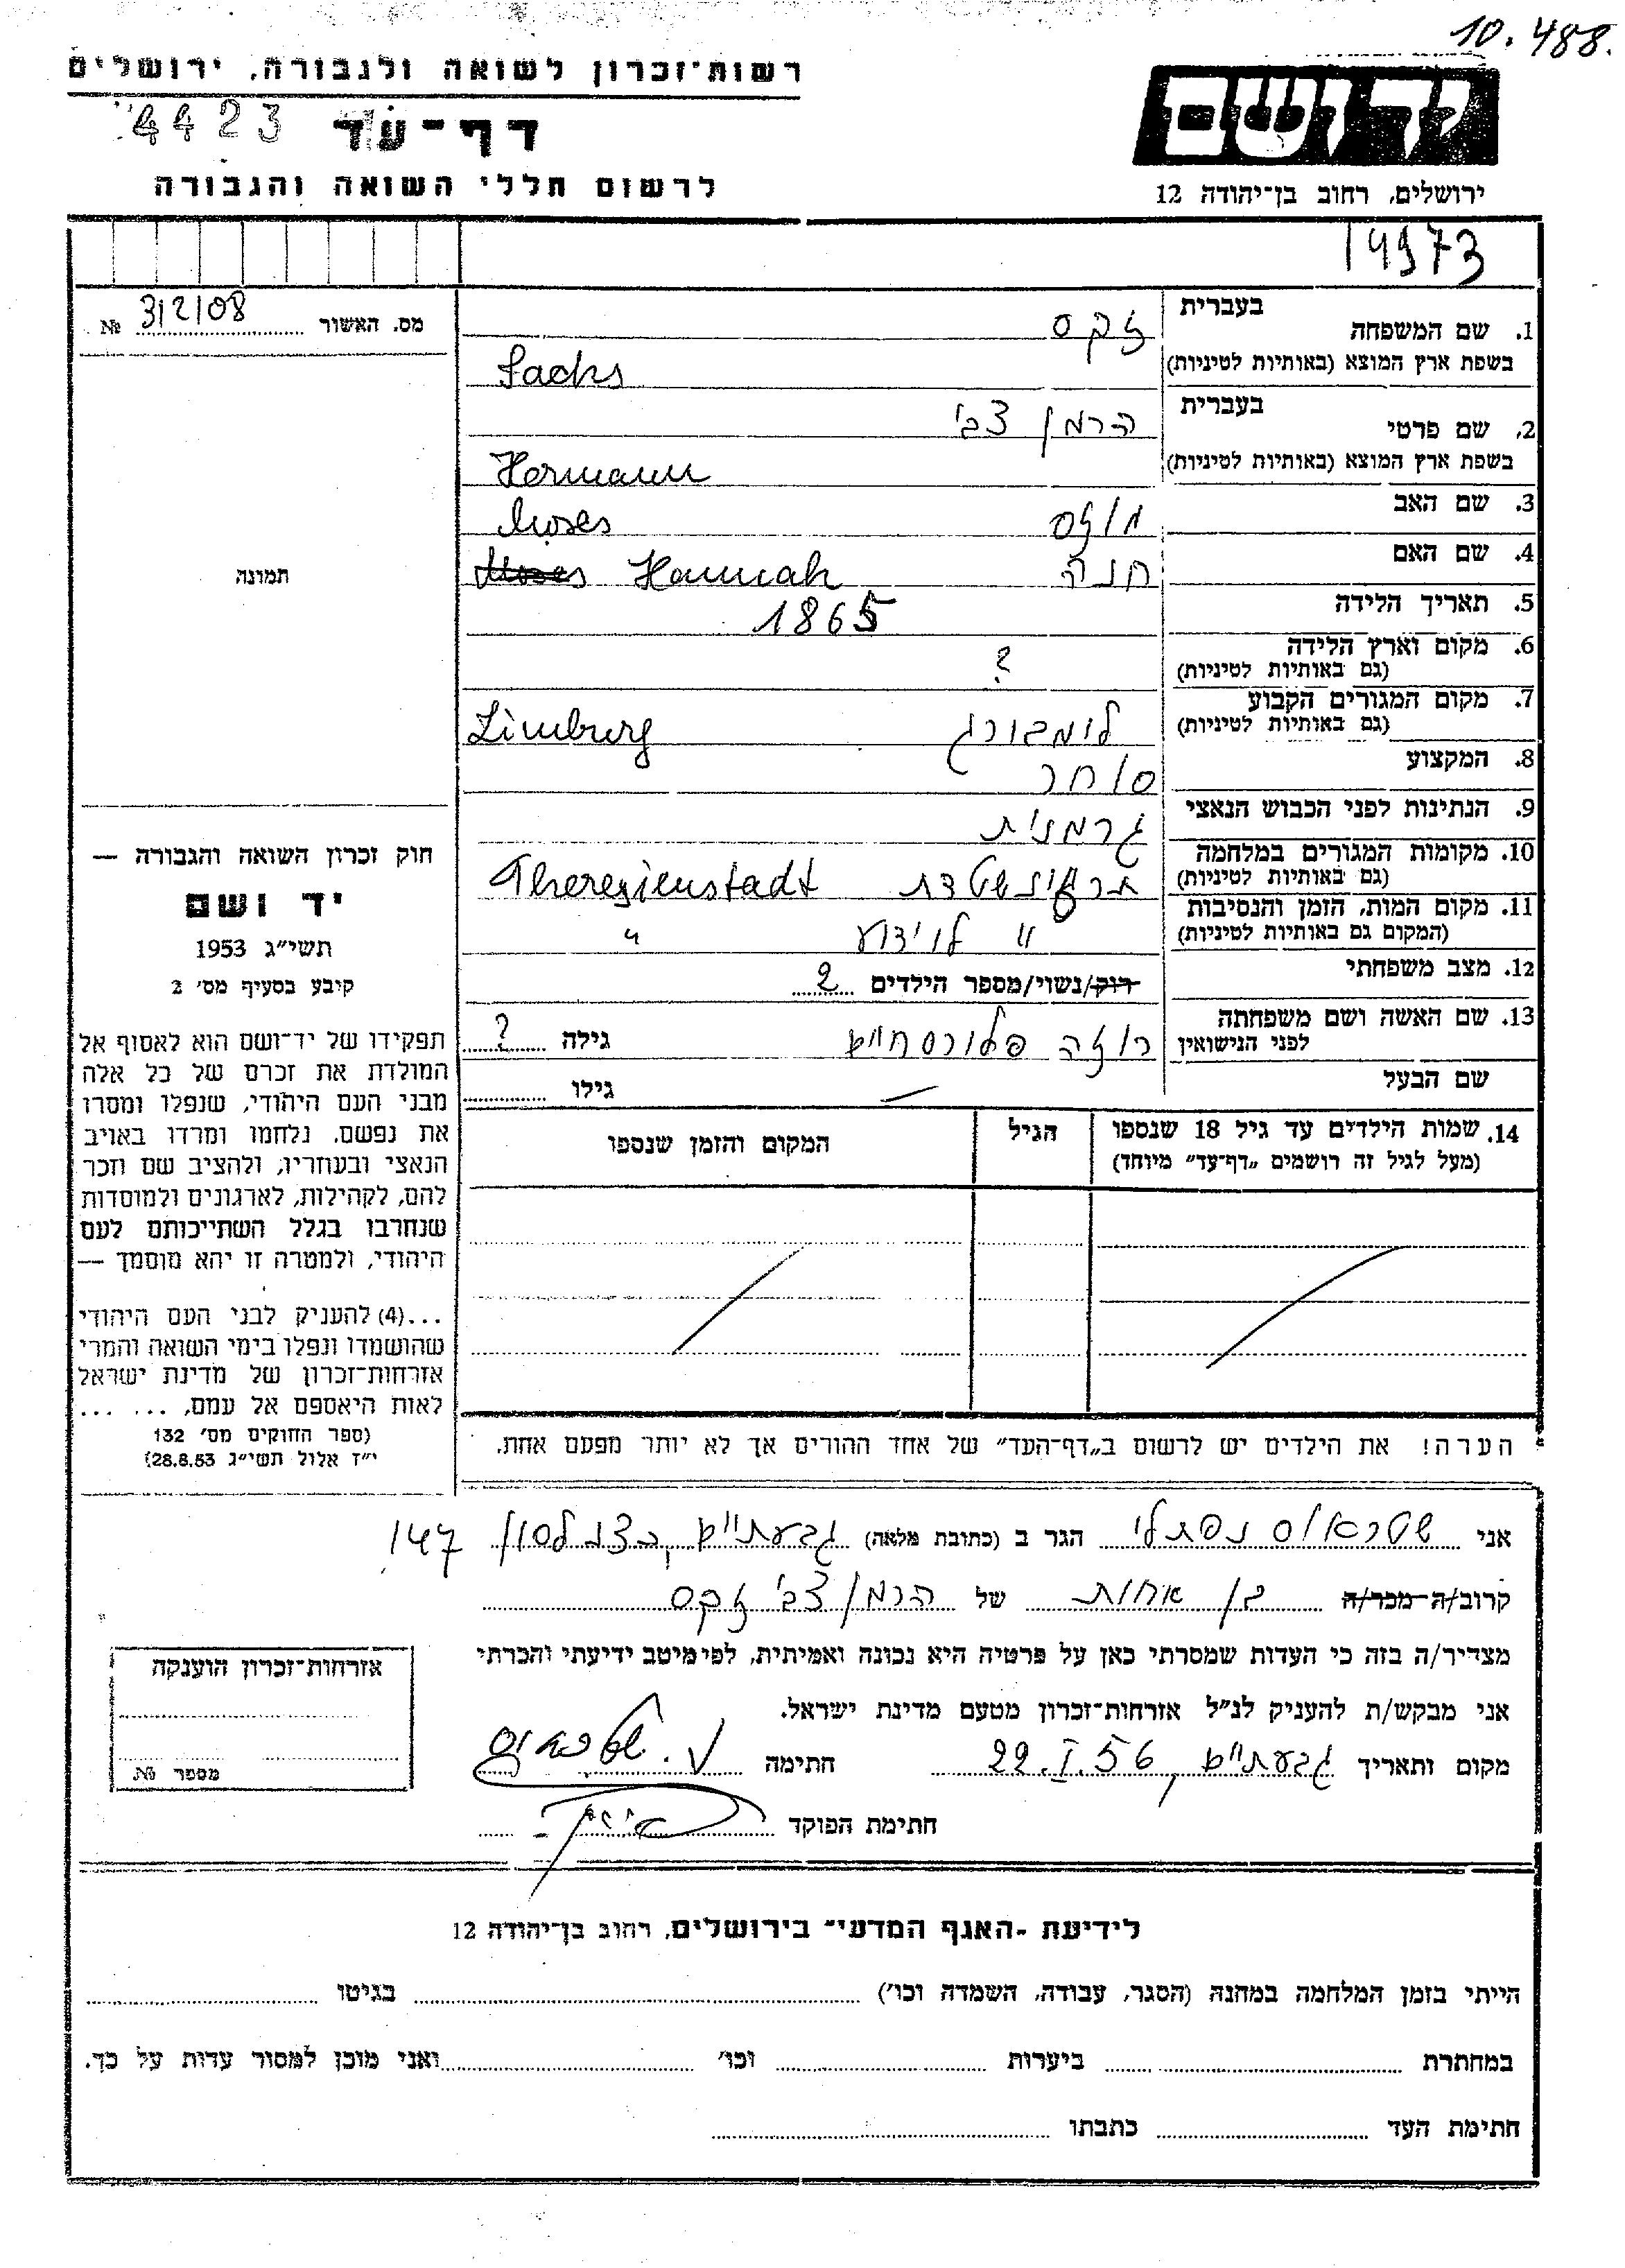 10.488.
רשות־זכרון לשואה ולגבורה, ירושלים
דף־עד
4423
לרשום חללי השואה והגבורה
יד ושם
ירושלים, רחוב בן־יהודה 12
14973
מס. האשור № 312108
תמונה
חוק זכרון השואה והגבורה —
יד ושם
תשי״ג 1953
קיבע בסעיף מס׳ 2
תפקידו של יד־ושם הוא לאסוף אל
המולדת את זכרם של כל אלה
מבני העם היהודי, שנפלו ומסרו
את נפשם, נלחמו ומרדו באויב
הנאצי ובעוזריו, ולהציב שם וזכר
להם, לקהילות, לארגונים ולמוסדות
שנחרבו בגלל השתייכותם לעם
היהודי, ולמטרה זו יהא מוסמך —
...(4) להעניק לבני העם היהודי
שהושמדו ונפלו בימי השואה והמרי
אזרחות־זכרון של מדינת ישראל
לאות היאספם אל עמם, ... ...
(ספר החוקים מס׳ 132
י״ז אלול תשי״ג 28.8.53)
בעברית
1. שם המשפחה זקס
בשפת ארץ המוצא (באותיות לטיניות) Sachs
בעברית
2. שם פרטי הרמן צבי
בשפת ארץ המוצא (באותיות לטיניות) Hermann
3. שם האב מוזס Moses
4. שם האם חנה Moses Hannah
5. תאריך הלידה 1865
6. מקום וארץ הלידה ?
(גם באותיות לטיניות)
7. מקום המגורים הקבוע לימבורג Limburg
(גם באותיות לטיניות)
8. המקצוע סוחר
9. הנתינות לפני הכבוש הנאצי גרמנית
10. מקומות המגורים במלחמה Theresienstadt
(גם באותיות לטיניות)
11. מקום המות, הזמן והנסיבות " לא ידוע "
(המקום גם באותיות לטיניות)
12. מצב משפחתי רוק/נשוי/מספר הילדים 2
13. שם האשה ושם משפחתה רוזה גילה ?
לפני הנישואין
שם הבעל — גילו
14. שמות הילדים עד גיל 18 שנספו הגיל המקום והזמן שנספו
(מעל לגיל זה רושמים „דף־עד״ מיוחד)
הערה! את הילדים יש לרשום ב„דף־העד״ של אחד ההורים אך לא יותר מפעם אחת.
אני שטראוס נפתלי הגר ב (כתובת מלאה) גבעתיים, כצנלסון 147
קרוב/ה מכר/ה בן אחות של הרמן צבי זקס
מצהיר/ה בזה כי העדות שמסרתי כאן על פרטיה היא נכונה ואמיתית, לפי מיטב ידיעתי והכרתי
אני מבקש/ת להעניק לנ״ל אזרחות־זכרון מטעם מדינת ישראל.
מקום ותאריך גבעתיים, 22.I.56 חתימה נ. שטראוס
חתימת הפוקד
אזרחות־זכרון הוענקה
מספר №
לידיעת „האגף המדעי״ בירושלים, רחוב בן־יהודה 12
הייתי בזמן המלחמה במחנה (הסגר, עבודה, השמדה וכו׳) בגיטו
במחתרת ביערות וכו׳ ואני מוכן למסור עדות על כך.
חתימת העד כתבתו